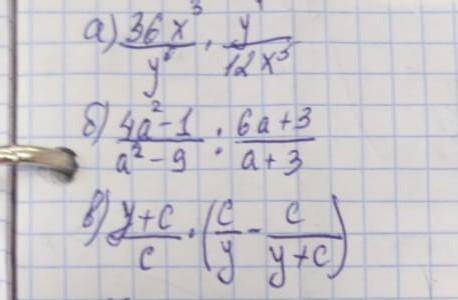 а) 36x³/y · y/12x³
б) 4a²-1/a²-9 : 6a+3/a+3
в) y+c/c · (c/y - c/y+c)